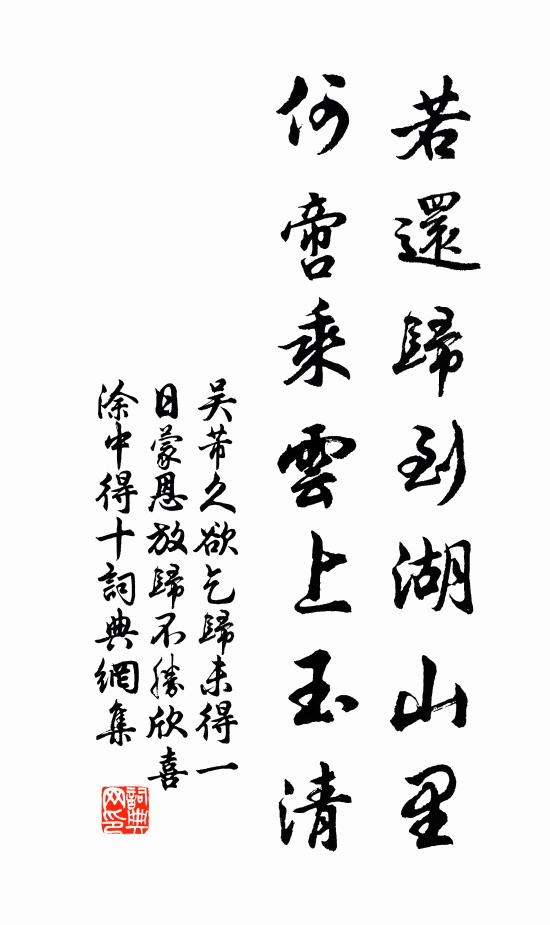 若還歸到湖山里
何啻乘雲上玉清
吴芾久欲乞歸未得一
日蒙恩放歸不勝欣喜
涂中得十詞典網集
詞典
网印